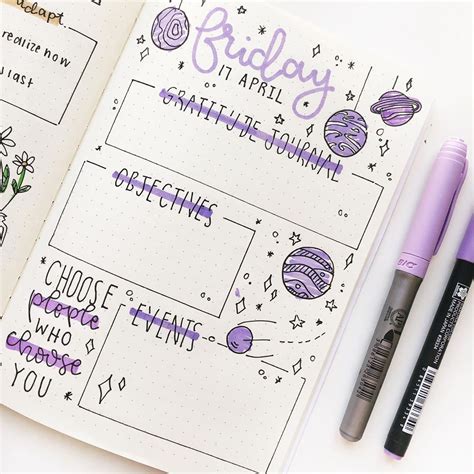 adapt.
realize now
last
friday
17 APRIL
GRATITUDE JOURNAL
OBJECTIVES
EVENTS
CHOOSE
people
WHO
choose
YOU
BIC
MADE IN JAPAN